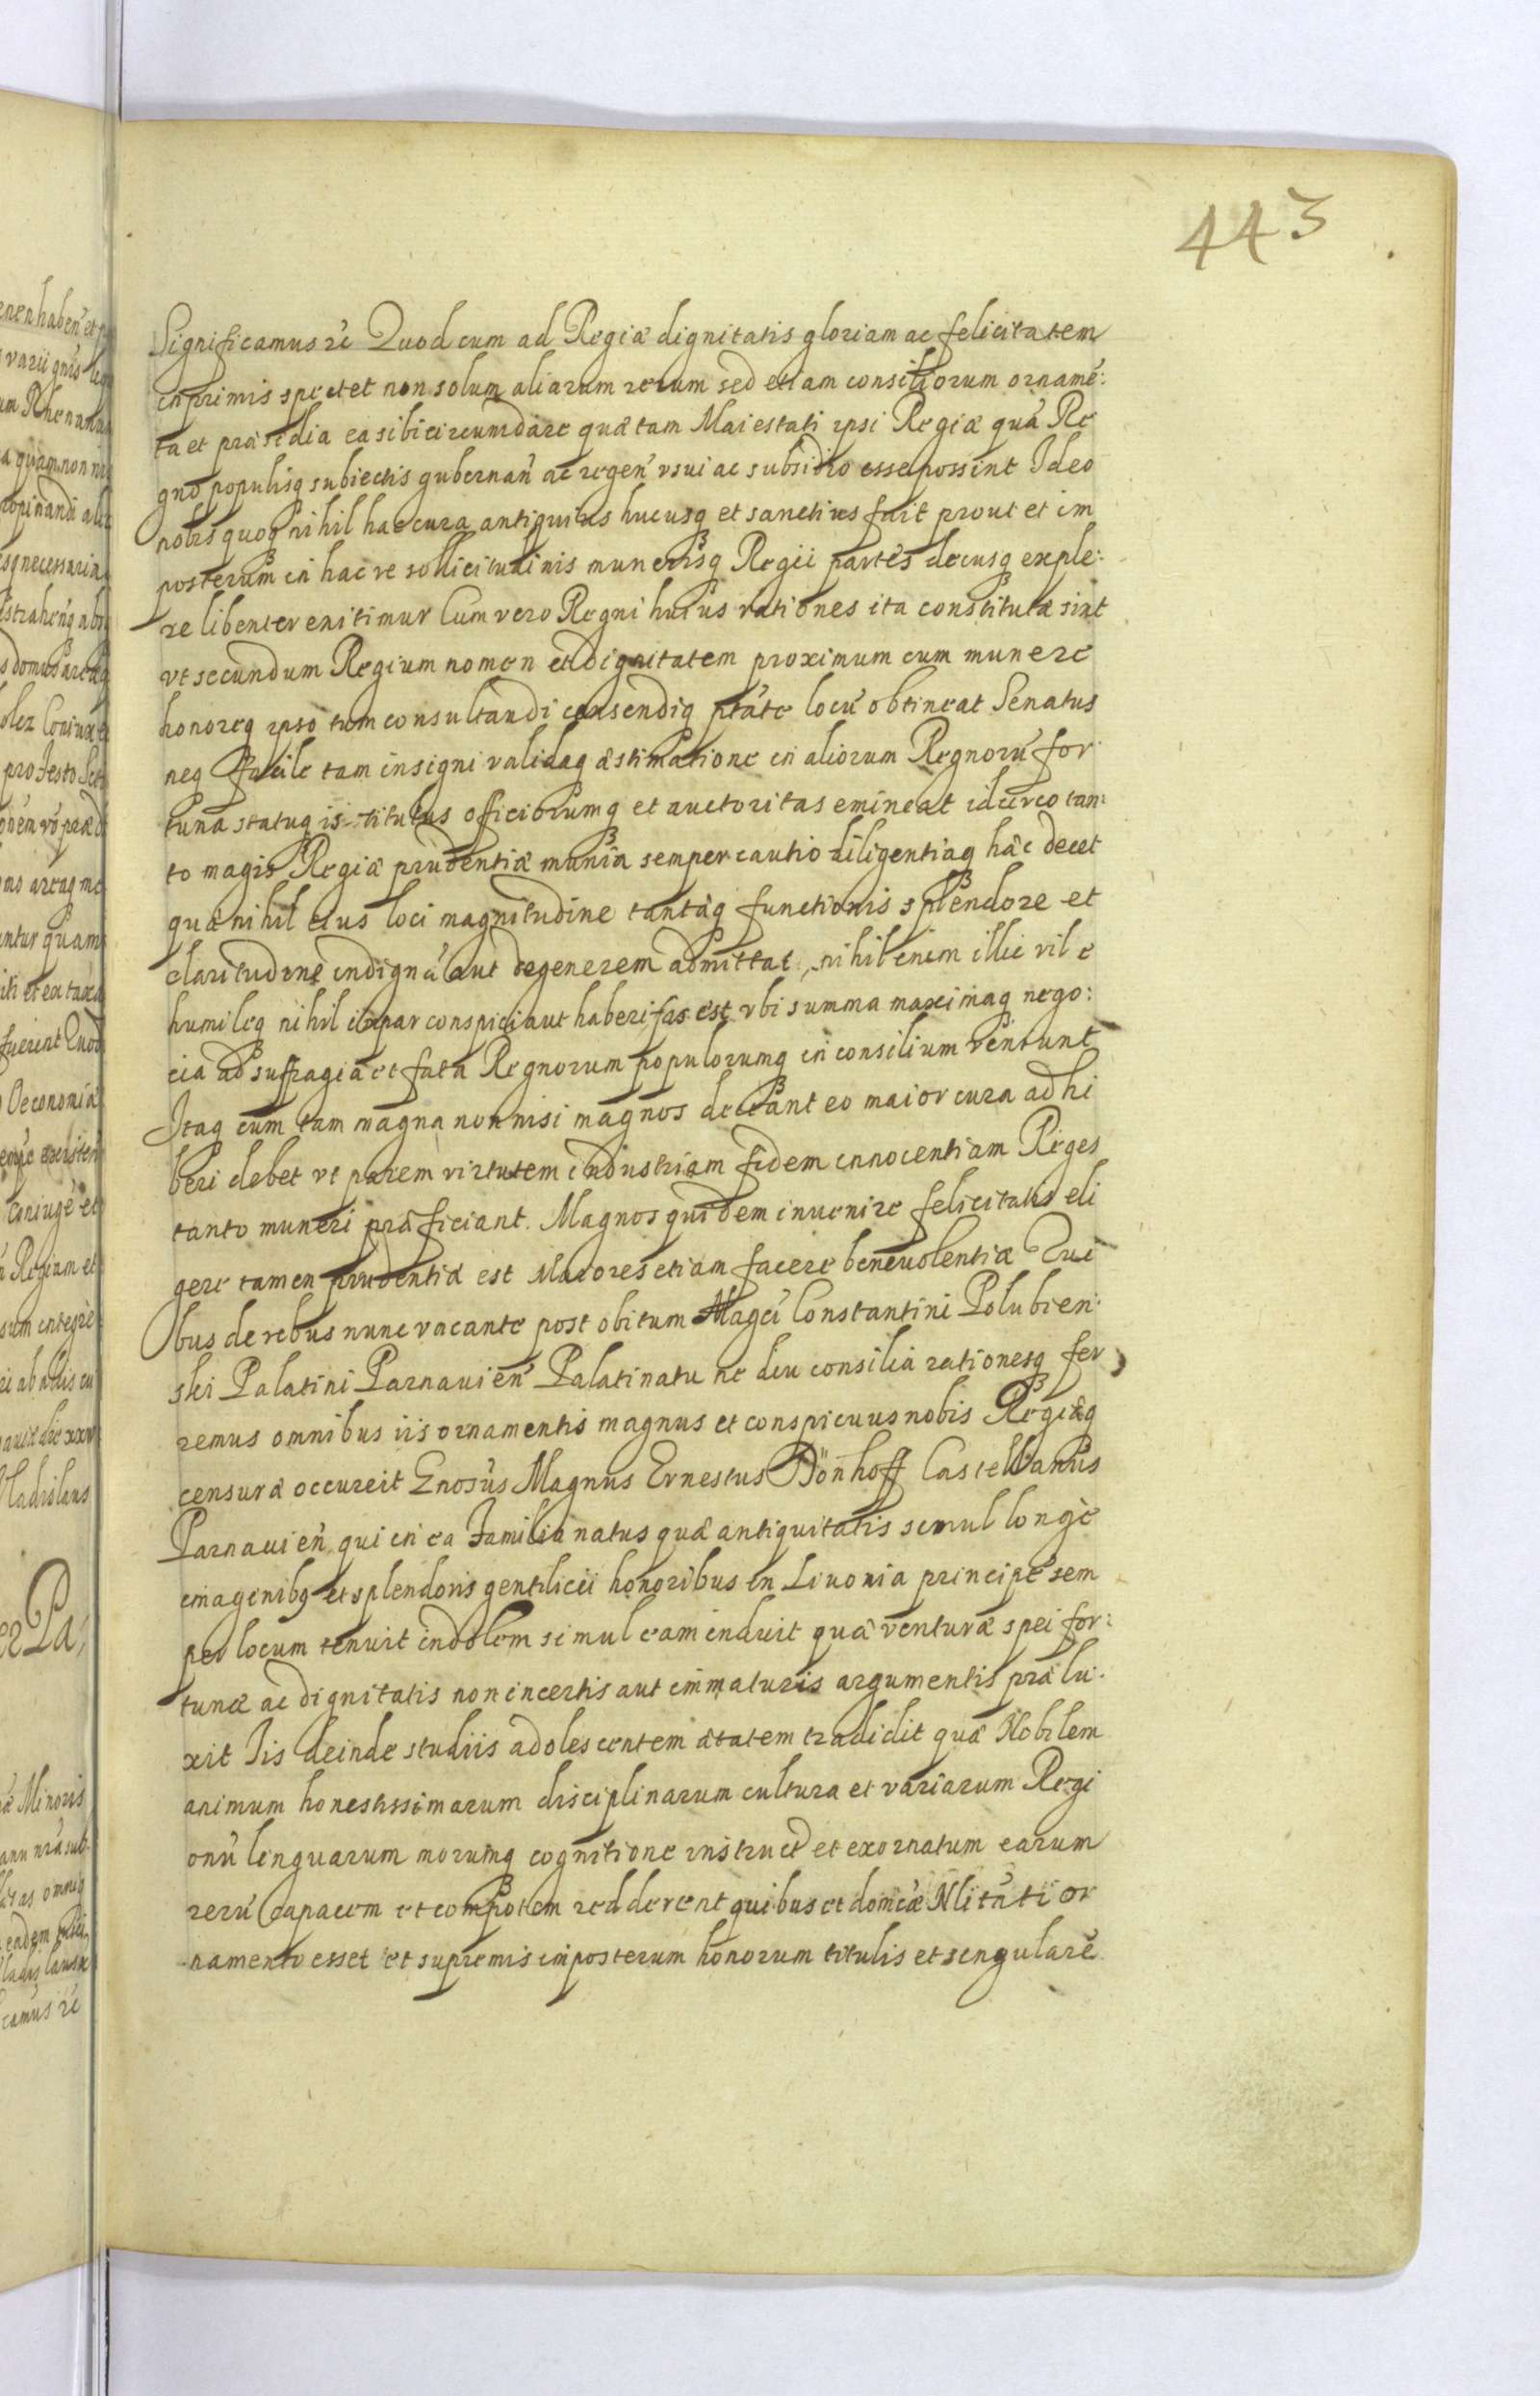 443
Significamus &c Quod cum ad Regiæ dignitatis gloriam ac felicitatem
inprimis spectet non solum aliarum rerum sed etiam consiliorum ornamē:
ta et præsidia ea sibi circumdare quæ tam Maiestati ipsi Regiæ quā Re
gno populisq subiectis gubernan̄ ac regen̄ vsui ac subsidio esse possint Ideo
nobis quoq nihil hac cura antiquius hucusq et sanctius fuit prout et im
posterum in hac re sollicitudinis munerisq Regii partes decusq exple:
re libenter enitimur Cum vero Regni huius rationes ita constitutæ sint
vt secundum Regium nomen et dignitatem proximum cum munere
honoreq ipso tum consultandi censendiq ptāte locū obtineat Senatus
neq facile tam insigni validaq æstimatione in aliorum Regnorū for
tuna statuq is titulus officiorumq et auctoritas emineat idcirco tan:
to magis Regiæ prudentiæ munia semper cautio diligentiaq hæc decet
quæ nihil eius loci magnitudine tantaq functionis splendore et
claritudine indignū aut degenerem admittat, nihil enim illic vile
humileq nihil impar conspici aut haberi fas est vbi summa maximaq nego:
cia ad suffragia et fata Regnorum populorumq in consilium veniunt
Itaq cum tam magna non nisi magnos deceant eo maior cura adhi
beri debet vt parem virtutem industriam fidem innocentiam Reges
tanto muneri præficiant. Magnos quidem inuenire felicitatis eli
gere tamen prudentiæ est Maiores etiam facere beneuolentiæ Qui
bus de rebus nunc vacante post obitum Magci Constantini Polubien:
ski Palatini Parnauien̄ Palatinatu ne diu consilia rationesq fer
remus omnibus iis ornamentis magnus et conspicuus nobis Regiæq
censuræ occurrit Gnosus Magnus Ernestus Dönhoff Castellanus
Parnauien̄ qui in ea Familia natus quæ antiquitatis simul longè
imaginibq et splendoris gentilicii honoribus in Liuonia principē sem
per locum tenuit indolem simul eam induit quæ venturæ spei for:
tunæ ac dignitatis non incertis aut immaturis argumentis prælu:
xit Iis deinde studiis adolescentem ætatem tradidit quæ Nobilem
animum honestissimarum disciplinarum cultura et variarum Regi
onū linguarum morumq cognitione instructū et exornatum earum
rerū capacem et compotem redderent quibus et domicæ Nlitati or
namento esset et supremis imposterum honorum titulis et singularē